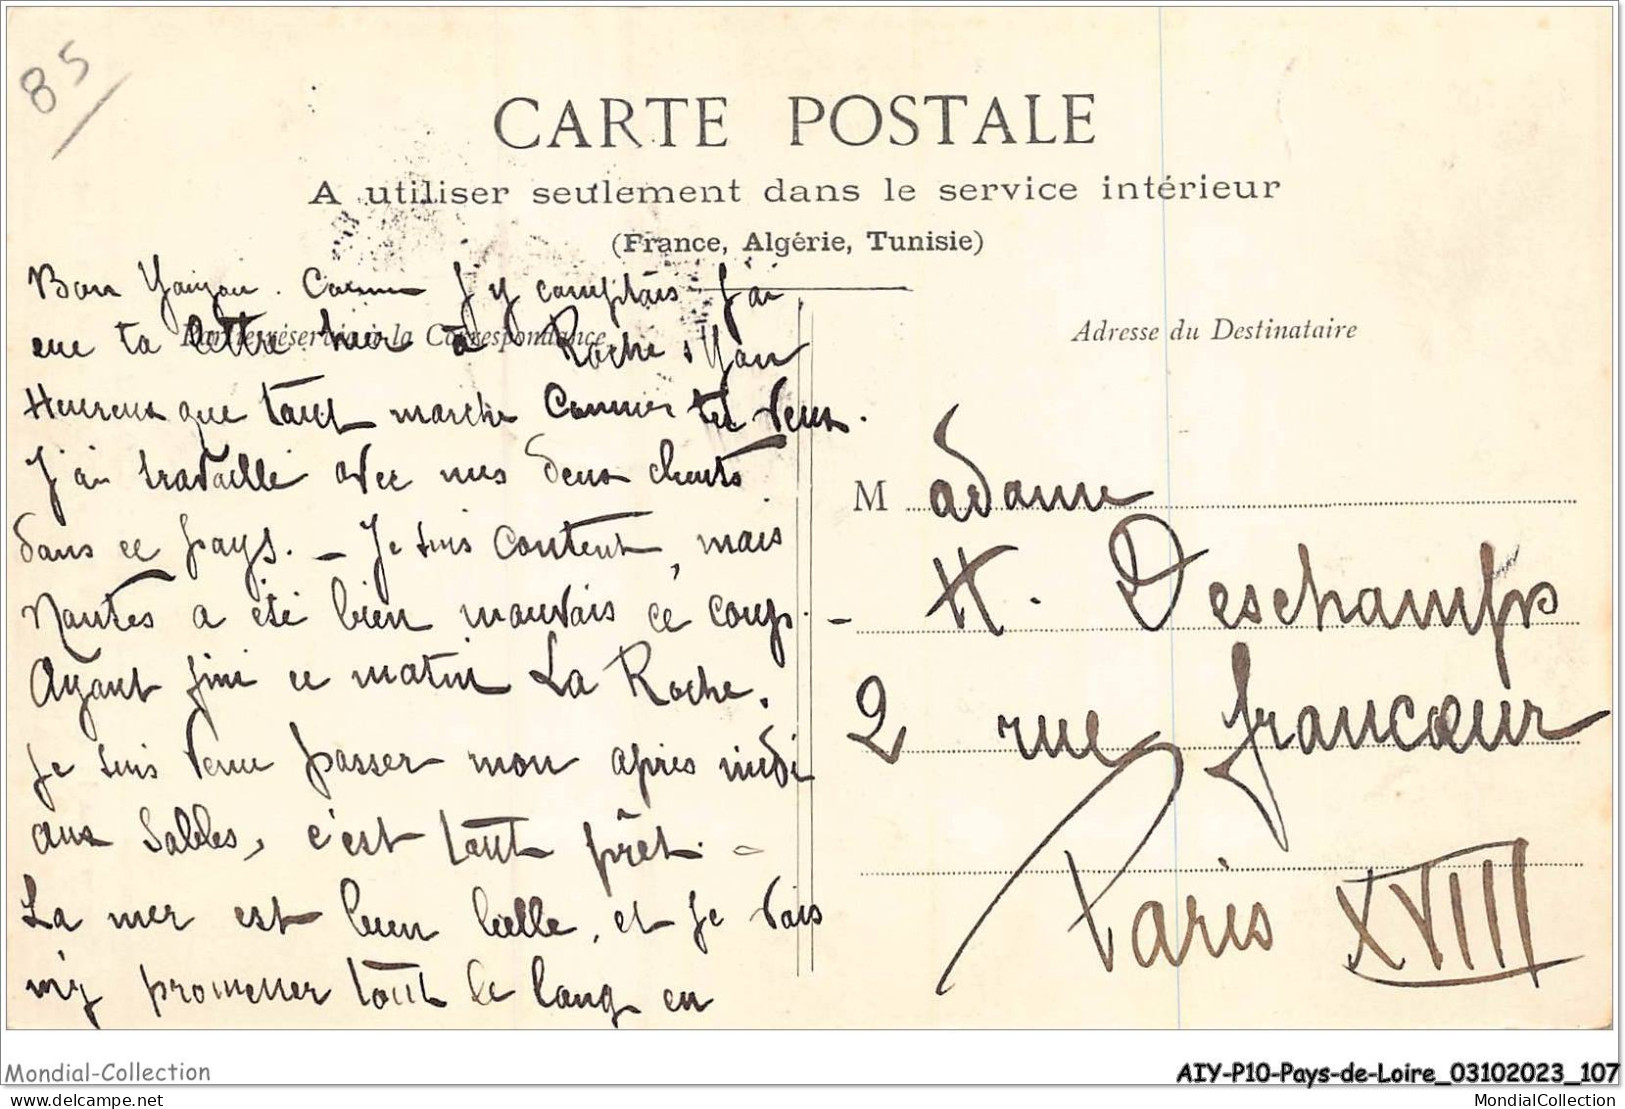 85
CARTE POSTALE
A utiliser seulement dans le service intérieur
(France, Algérie, Tunisie)
Partie réservée à la Correspondance
Adresse du Destinataire
Bon . Comme j'y comptais j'ai
eue ta lettre hier à Roche s/Yon
Heureux que tout marche comme tu veux.
J'ai travaillé avec mes deux clients
dans ce pays. — Je suis content, mais
Nantes a été bien mauvais ce coup. —
Ayant fini ce matin La Roche,
je suis venu passer mon après midi
aux Sables, c'est tout prêt. —
La mer est bien belle, et je vais
m'y promener tout le long en
M adame
H. Deschamps
2 rue francœur
Paris XVIII
Mondial-Collection
AIY-P10-Pays-de-Loire_03102023_107
delcampe.net
MondialCollection